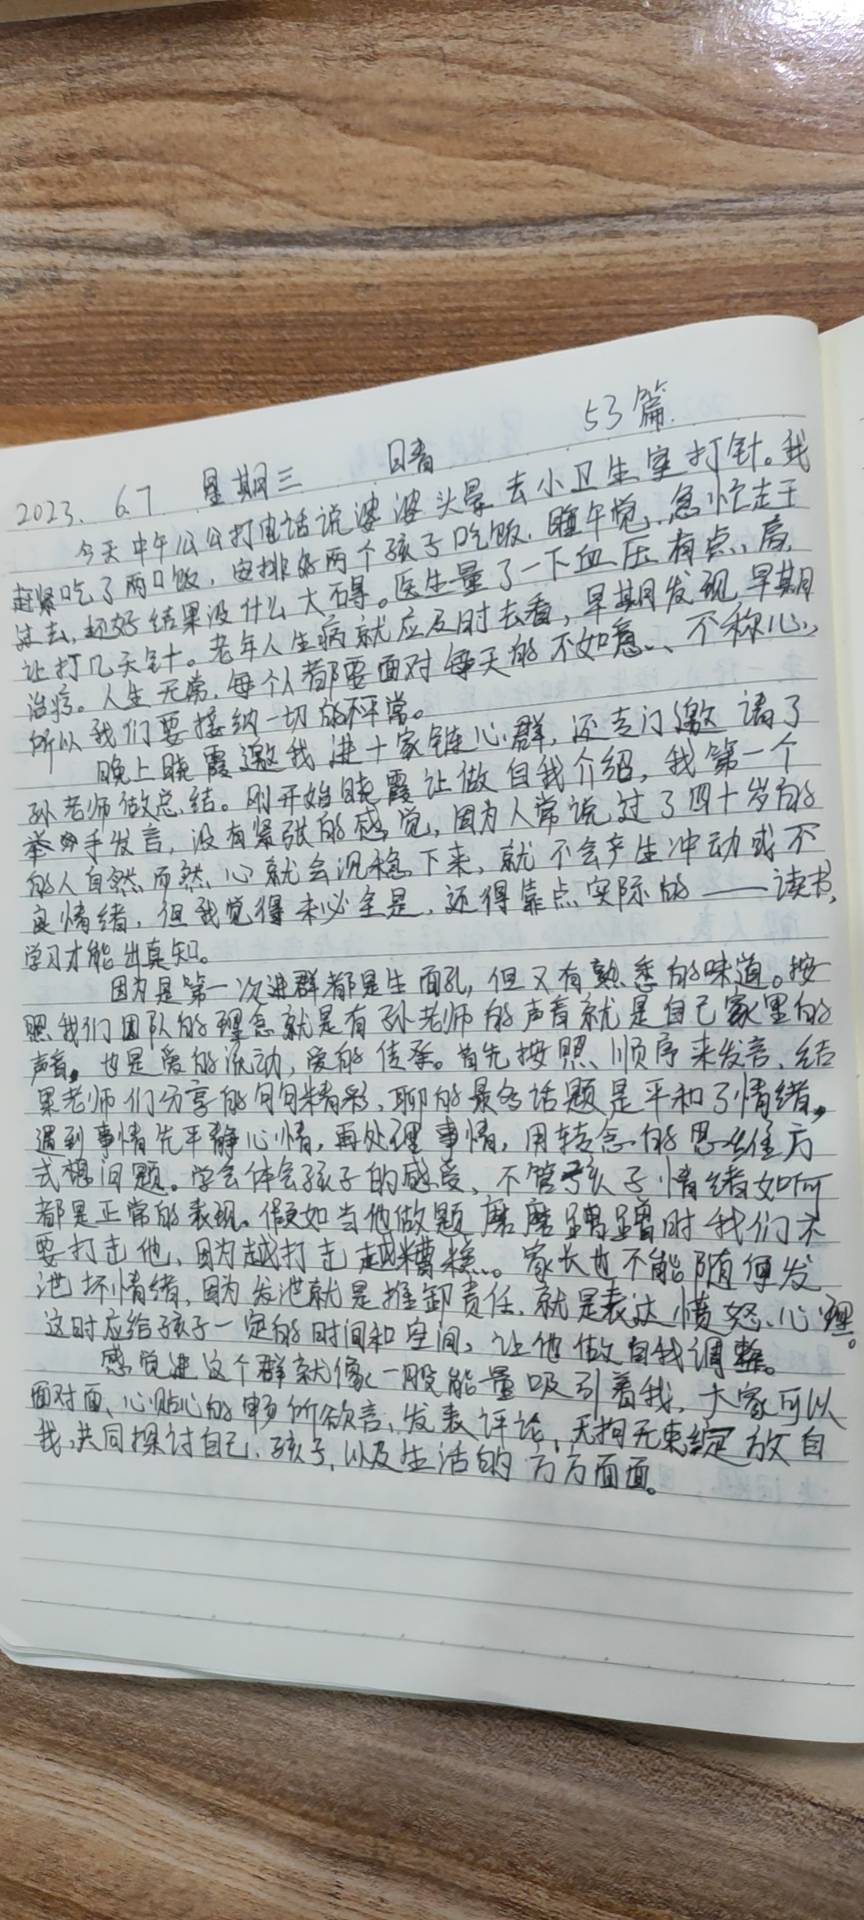 53篇.
2023. 6.7 星期三 日睛
今天中午公公打电话说婆婆头晕去小卫生室打针。我
赶紧吃了两口饭,安排好两个孩子吃饭.睡午觉.急忙走于
过去,还好结果没什么大碍。医生量了一下血压有点高,
让打几天针。老年人生病就应及时去看,早期发现早期
治疗。人生无常,每个人都要面对每天的不如意、不称心,
所以我们要接纳一切的不平常。
晚上晓霞邀我进十家链心群,还专门邀请了
孙老师做总结。刚开始晓霞让做自我介绍,我第一个
举手发言,没有紧张的感觉,因为人常说过了四十岁的
的人自然而然心就会沉稳下来,就不会产生冲动或不
良情绪,但我觉得未必全是,还得靠点实际的——读书,
学习才能出真知。
因为是第一次进群都是生面孔,但又有熟悉的味道。按
照我们团队的理念就是有孙老师的声音就是自己家里的
声音。也是爱的流动,爱的传承。首先按照顺序来发言,结
果老师们分享的句句精彩、聊的最多话题是平和了情绪,
遇到事情先平静心情,再处理事情,用转念的思维方
式想问题。学会体会孩子的感受、不管孩子情绪如何
都是正常的表现。假如当他做题磨磨蹭蹭时我们不
要打击他,因为越打击越糟糕。家长也不能随便发
泄坏情绪,因为发泄就是推卸责任.就是表达愤怒心理。
这时应给孩子一定的时间和空间,让他做自我调整。
感觉进这个群就像一股能量吸引着我,大家可以
面对面、心贴心的畅所欲言、发表评论,无拘无束绽放自
我,共同探讨自己、孩子,以及生活的方方面面。